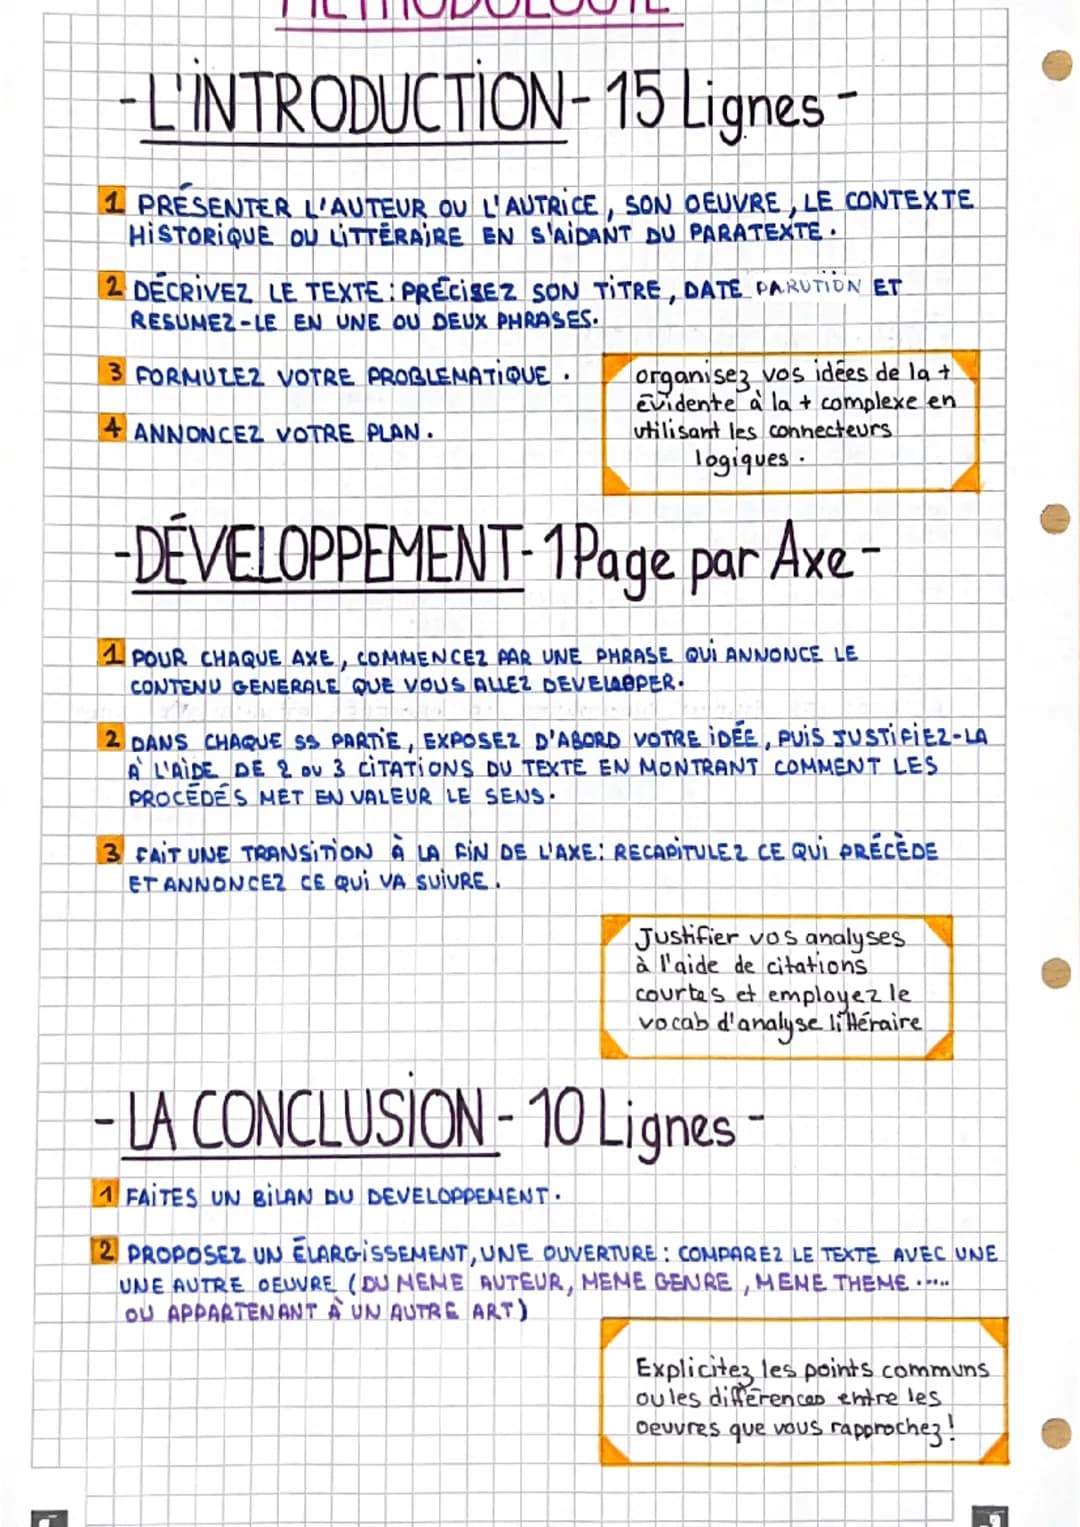 MÉTHODOLOGIE
-L'INTRODUCTION- 15 Lignes -
1 PRÉSENTER L'AUTEUR OU L'AUTRICE, SON OEUVRE, LE CONTEXTE
HISTORIQUE OU LITTÉRAIRE EN S'AIDANT DU PARATEXTE.
2 DÉCRIVEZ LE TEXTE : PRÉCISEZ SON TITRE, DATE PARUTION ET
RESUMEZ-LE EN UNE OU DEUX PHRASES.
3 FORMULEZ VOTRE PROBLEMATIQUE.
4 ANNONCEZ VOTRE PLAN.
organisez vos idées de la +
évidente à la + complexe en
utilisant les connecteurs
logiques.
-DÉVELOPPEMENT- 1 Page par Axe -
1 POUR CHAQUE AXE, COMMENCEZ PAR UNE PHRASE QUI ANNONCE LE
CONTENU GENERALE QUE VOUS ALLEZ DEVELOPPER.
2 DANS CHAQUE SS PARTIE, EXPOSEZ D'ABORD VOTRE IDÉE, PUIS JUSTIFIEZ-LA
À L'AIDE DE 2 OU 3 CITATIONS DU TEXTE EN MONTRANT COMMENT LES
PROCÉDÉS MET EN VALEUR LE SENS.
3 FAIT UNE TRANSITION À LA FIN DE L'AXE : RECAPITULEZ CE QUI PRÉCÈDE
ET ANNONCEZ CE QUI VA SUIVRE.
Justifier vos analyses
à l'aide de citations
courtes et employez le
vocab d'analyse littéraire
- LA CONCLUSION - 10 Lignes -
1 FAITES UN BILAN DU DEVELOPPEMENT.
2 PROPOSEZ UN ÉLARGISSEMENT, UNE OUVERTURE : COMPAREZ LE TEXTE AVEC UNE
UNE AUTRE OEUVRE (DU MEME AUTEUR, MEME GENRE, MEME THEME .....
OU APPARTENANT À UN AUTRE ART)
Explicitez les points communs
ou les différences entre les
oeuvres que vous rapprochez !